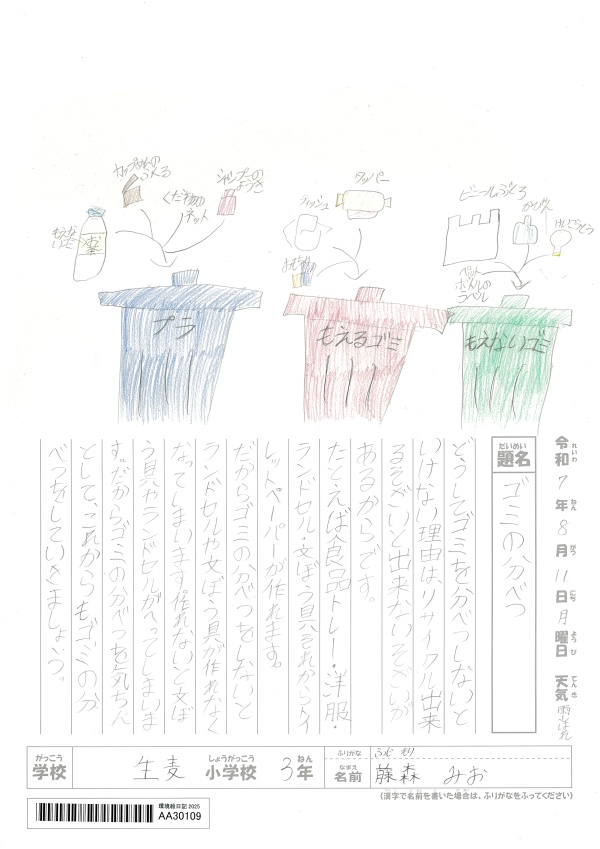 カップめんのふくろ
シャンプーのようき
くだもののネット
プラ
ティッシュ
タッパー
もえるゴミ
ビニールぶくろ
かびん
けいこうとう
ペットボトルのラベル
もえないゴミ
令和7年8月11日月曜日 天気
れいわ ねん がつ にち ようび てんき
だいめい
題名
ゴミの分べつ
どうしてゴミを分べつしないと
いけない理由は、リサイクル出来
るそざいと出来ないそざいが
あるからです。
たとえば食品トレー・洋服・
ランドセル・文ぼう具それからトイ
レットペーパーが作れます。
だからゴミの分べつをしないと
ランドセルや文ぼう具が作れなく
なってしまいます。作れないと文ぼ
う具やランドセルがへってしまいま
す。だからゴミの分べつを気ちん
として、これからもゴミの分
べつをしていきましょう。
がっこう
学校
生麦
しょうがっこう
小学校
3年
ねん
ふりがな
ふじ もり
なまえ
名前
藤森 みお
(漢字で名前を書いた場合は、ふりがなをふってください)
環境絵日記2025
AA30109